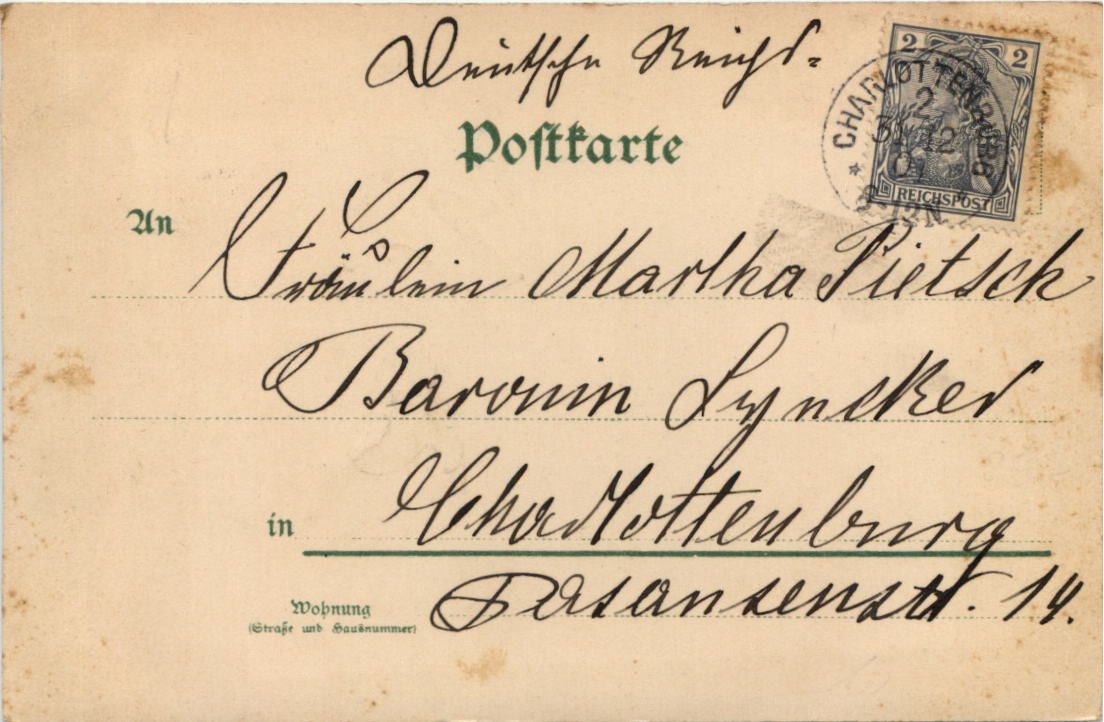 Deutsche Reichs-
Postkarte
2 2
REICHSPOST
* CHARLOTTENBURG
2
31 12
01
12N.
An
Fräulein Martha Pietsch
Baronin Lyncker
in
Charlottenburg
Wohnung
(Straße und Hausnummer)
Fasanenstr. 14.